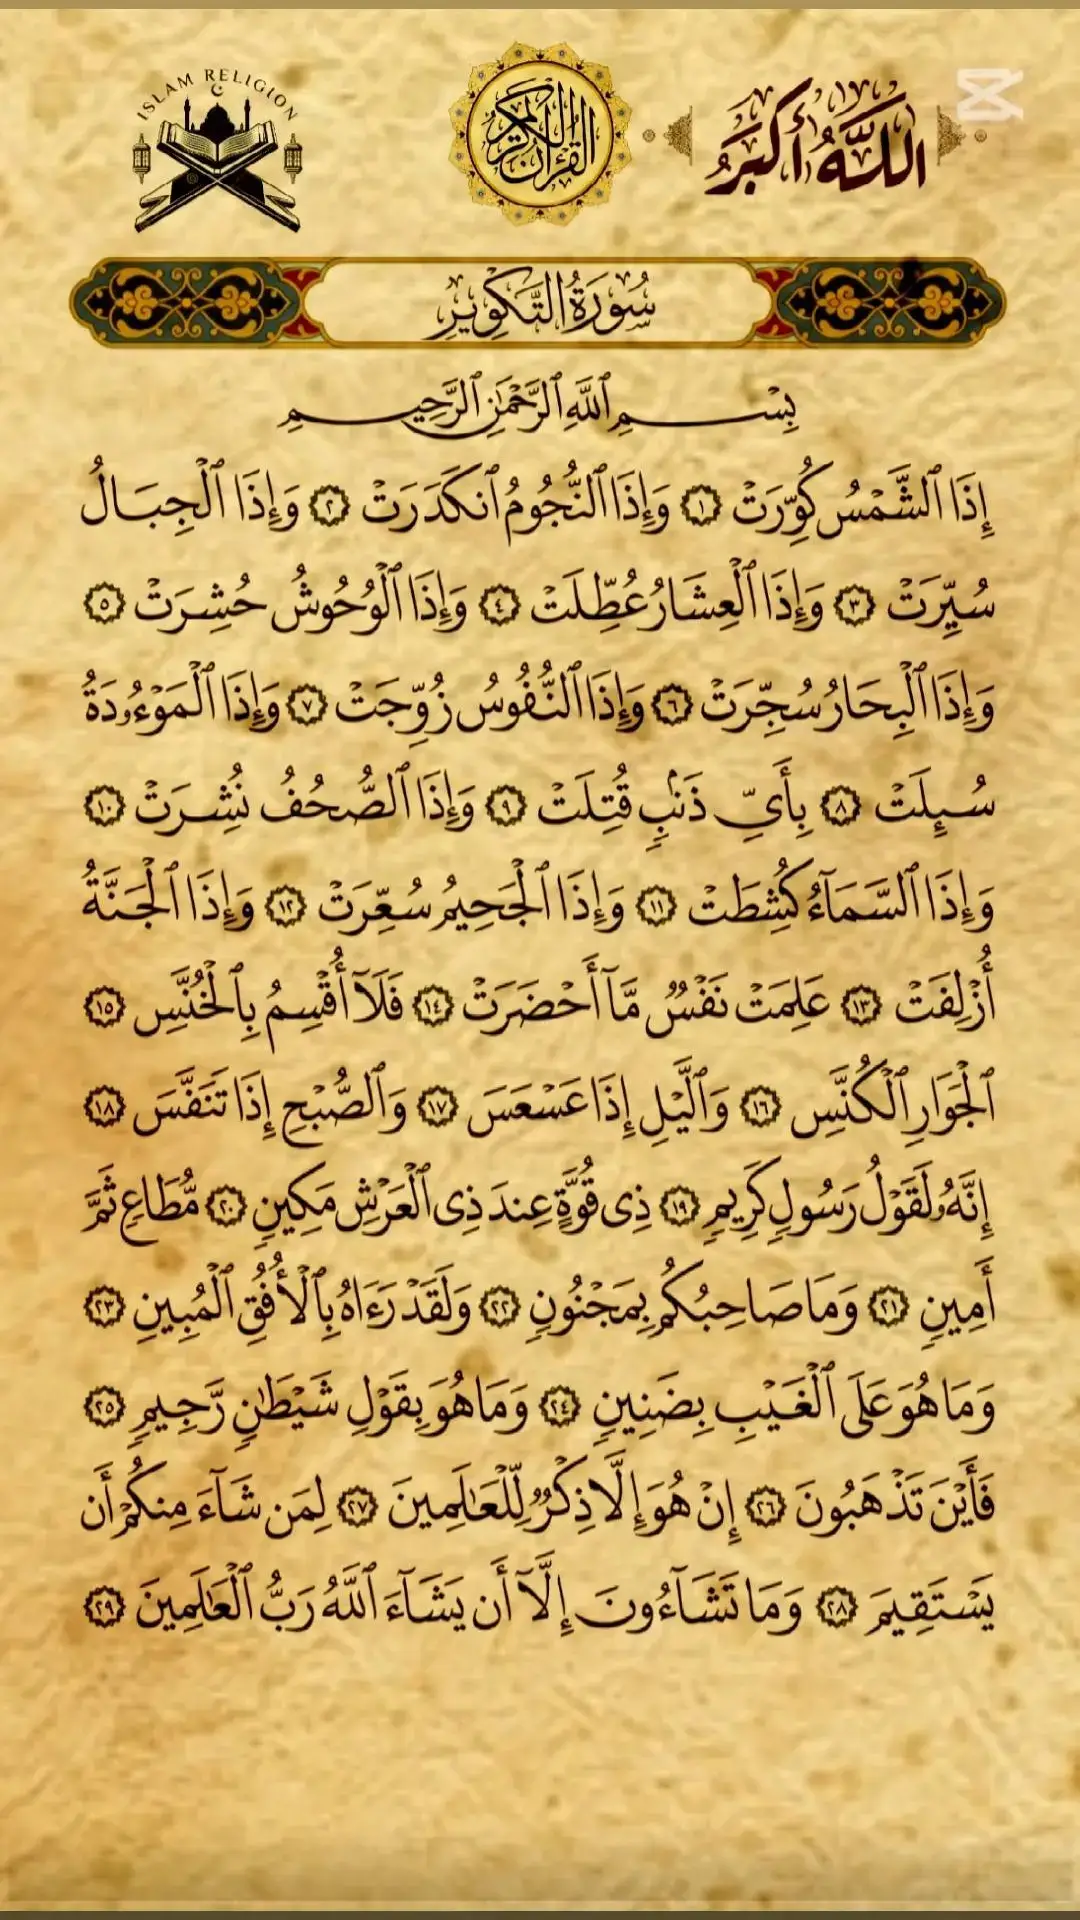 ISLAM RELIGION
القرآن الكريم
اللَّهُ أَكْبَرُ
سُورَةُ التَّكْوِيرِ
بِسْمِ ٱللَّهِ ٱلرَّحْمَٰنِ ٱلرَّحِيمِ
إِذَا ٱلشَّمْسُ كُوِّرَتْ ١ وَإِذَا ٱلنُّجُومُ ٱنكَدَرَتْ ٢ وَإِذَا ٱلْجِبَالُ
سُيِّرَتْ ٣ وَإِذَا ٱلْعِشَارُ عُطِّلَتْ ٤ وَإِذَا ٱلْوُحُوشُ حُشِرَتْ ٥
وَإِذَا ٱلْبِحَارُ سُجِّرَتْ ٦ وَإِذَا ٱلنُّفُوسُ زُوِّجَتْ ٧ وَإِذَا ٱلْمَوْءُۥدَةُ
سُئِلَتْ ٨ بِأَيِّ ذَنۢبٍ قُتِلَتْ ٩ وَإِذَا ٱلصُّحُفُ نُشِرَتْ ١٠
وَإِذَا ٱلسَّمَآءُ كُشِطَتْ ١١ وَإِذَا ٱلْجَحِيمُ سُعِّرَتْ ١٢ وَإِذَا ٱلْجَنَّةُ
أُزْلِفَتْ ١٣ عَلِمَتْ نَفْسٌ مَّآ أَحْضَرَتْ ١٤ فَلَآ أُقْسِمُ بِٱلْخُنَّسِ ١٥
ٱلْجَوَارِ ٱلْكُنَّسِ ١٦ وَٱلَّيْلِ إِذَا عَسْعَسَ ١٧ وَٱلصُّبْحِ إِذَا تَنَفَّسَ ١٨
إِنَّهُۥ لَقَوْلُ رَسُولٍ كَرِيمٍ ١٩ ذِى قُوَّةٍ عِندَ ذِى ٱلْعَرْشِ مَكِينٍ ٢٠ مُّطَاعٍ ثَمَّ
أَمِينٍ ٢١ وَمَا صَاحِبُكُم بِمَجْنُونٍ ٢٢ وَلَقَدْ رَءَاهُ بِٱلْأُفُقِ ٱلْمُبِينِ ٢٣
وَمَا هُوَ عَلَى ٱلْغَيْبِ بِضَنِينٍ ٢٤ وَمَا هُوَ بِقَوْلِ شَيْطَٰنٍ رَّجِيمٍ ٢٥
فَأَيْنَ تَذْهَبُونَ ٢٦ إِنْ هُوَ إِلَّا ذِكْرٌ لِّلْعَٰلَمِينَ ٢٧ لِمَن شَآءَ مِنكُمْ أَن
يَسْتَقِيمَ ٢٨ وَمَا تَشَآءُونَ إِلَّآ أَن يَشَآءَ ٱللَّهُ رَبُّ ٱلْعَٰلَمِينَ ٢٩